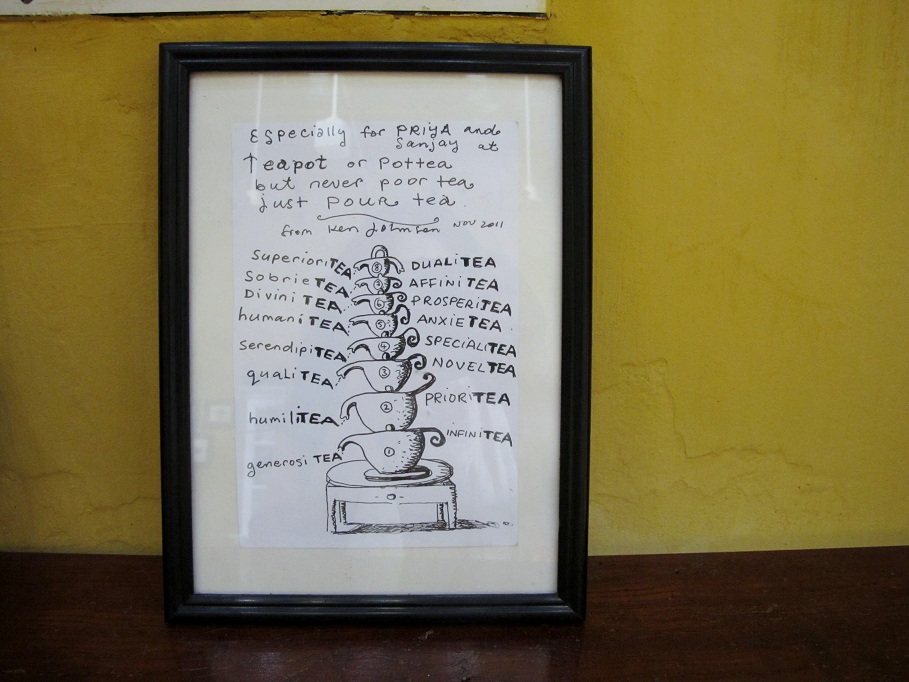 Especially for PRIYA and
Sanjay at
Teapot or Pottea
but never poor tea
just POUR tea.
from Ken Johnson NOV 2011
SuperioriTEA
DUALiTEA
SobrieTEA
AFFiNiTEA
DiviniTEA
PROSPERiTEA
humaniTEA
ANXIETEA
SPECIALiTEA
serendipiTEA
NOVELTEA
qualiTEA
PRIORiTEA
humiliTEA
INFINiTEA
generosiTEA
8
7
6
5
4
3
2
1